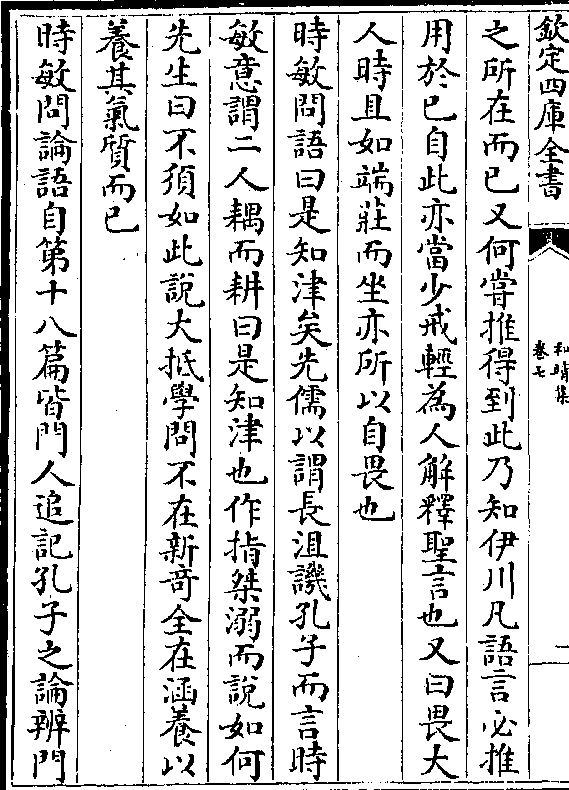 欽定四庫全書
和靖集
卷七
二
之所在而已又何嘗推得到此乃知伊川凡語言必推
用於已自此亦當少戒輕為人解釋聖言也又曰畏大
人時且如端莊而坐亦所以自畏也
時敏問語曰是知津矣先儒以謂長沮譏孔子而言時
敏意謂二人耦而耕曰是知津也作指桀溺而說如何
先生曰不須如此說大抵學問不在新竒全在涵養以
養其氣質而已
時敏問論語自第十八篇皆門人追記孔子之論辨門